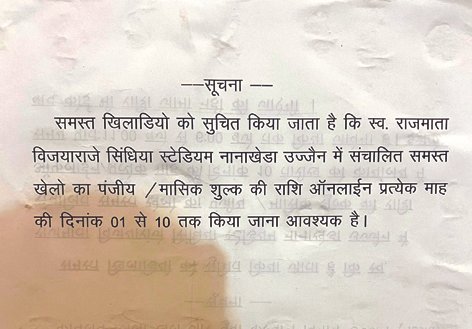 —सूचना —
समस्त खिलाडियो को सुचित किया जाता है कि स्व. राजमाता
विजयाराजे सिंधिया स्टेडियम नानाखेडा उज्जैन में संचालित समस्त
खेलो का पंजीय /मासिक शुल्क की राशि ऑनलाईन प्रत्येक माह
की दिनांक 01 से 10 तक किया जाना आवश्यक है।